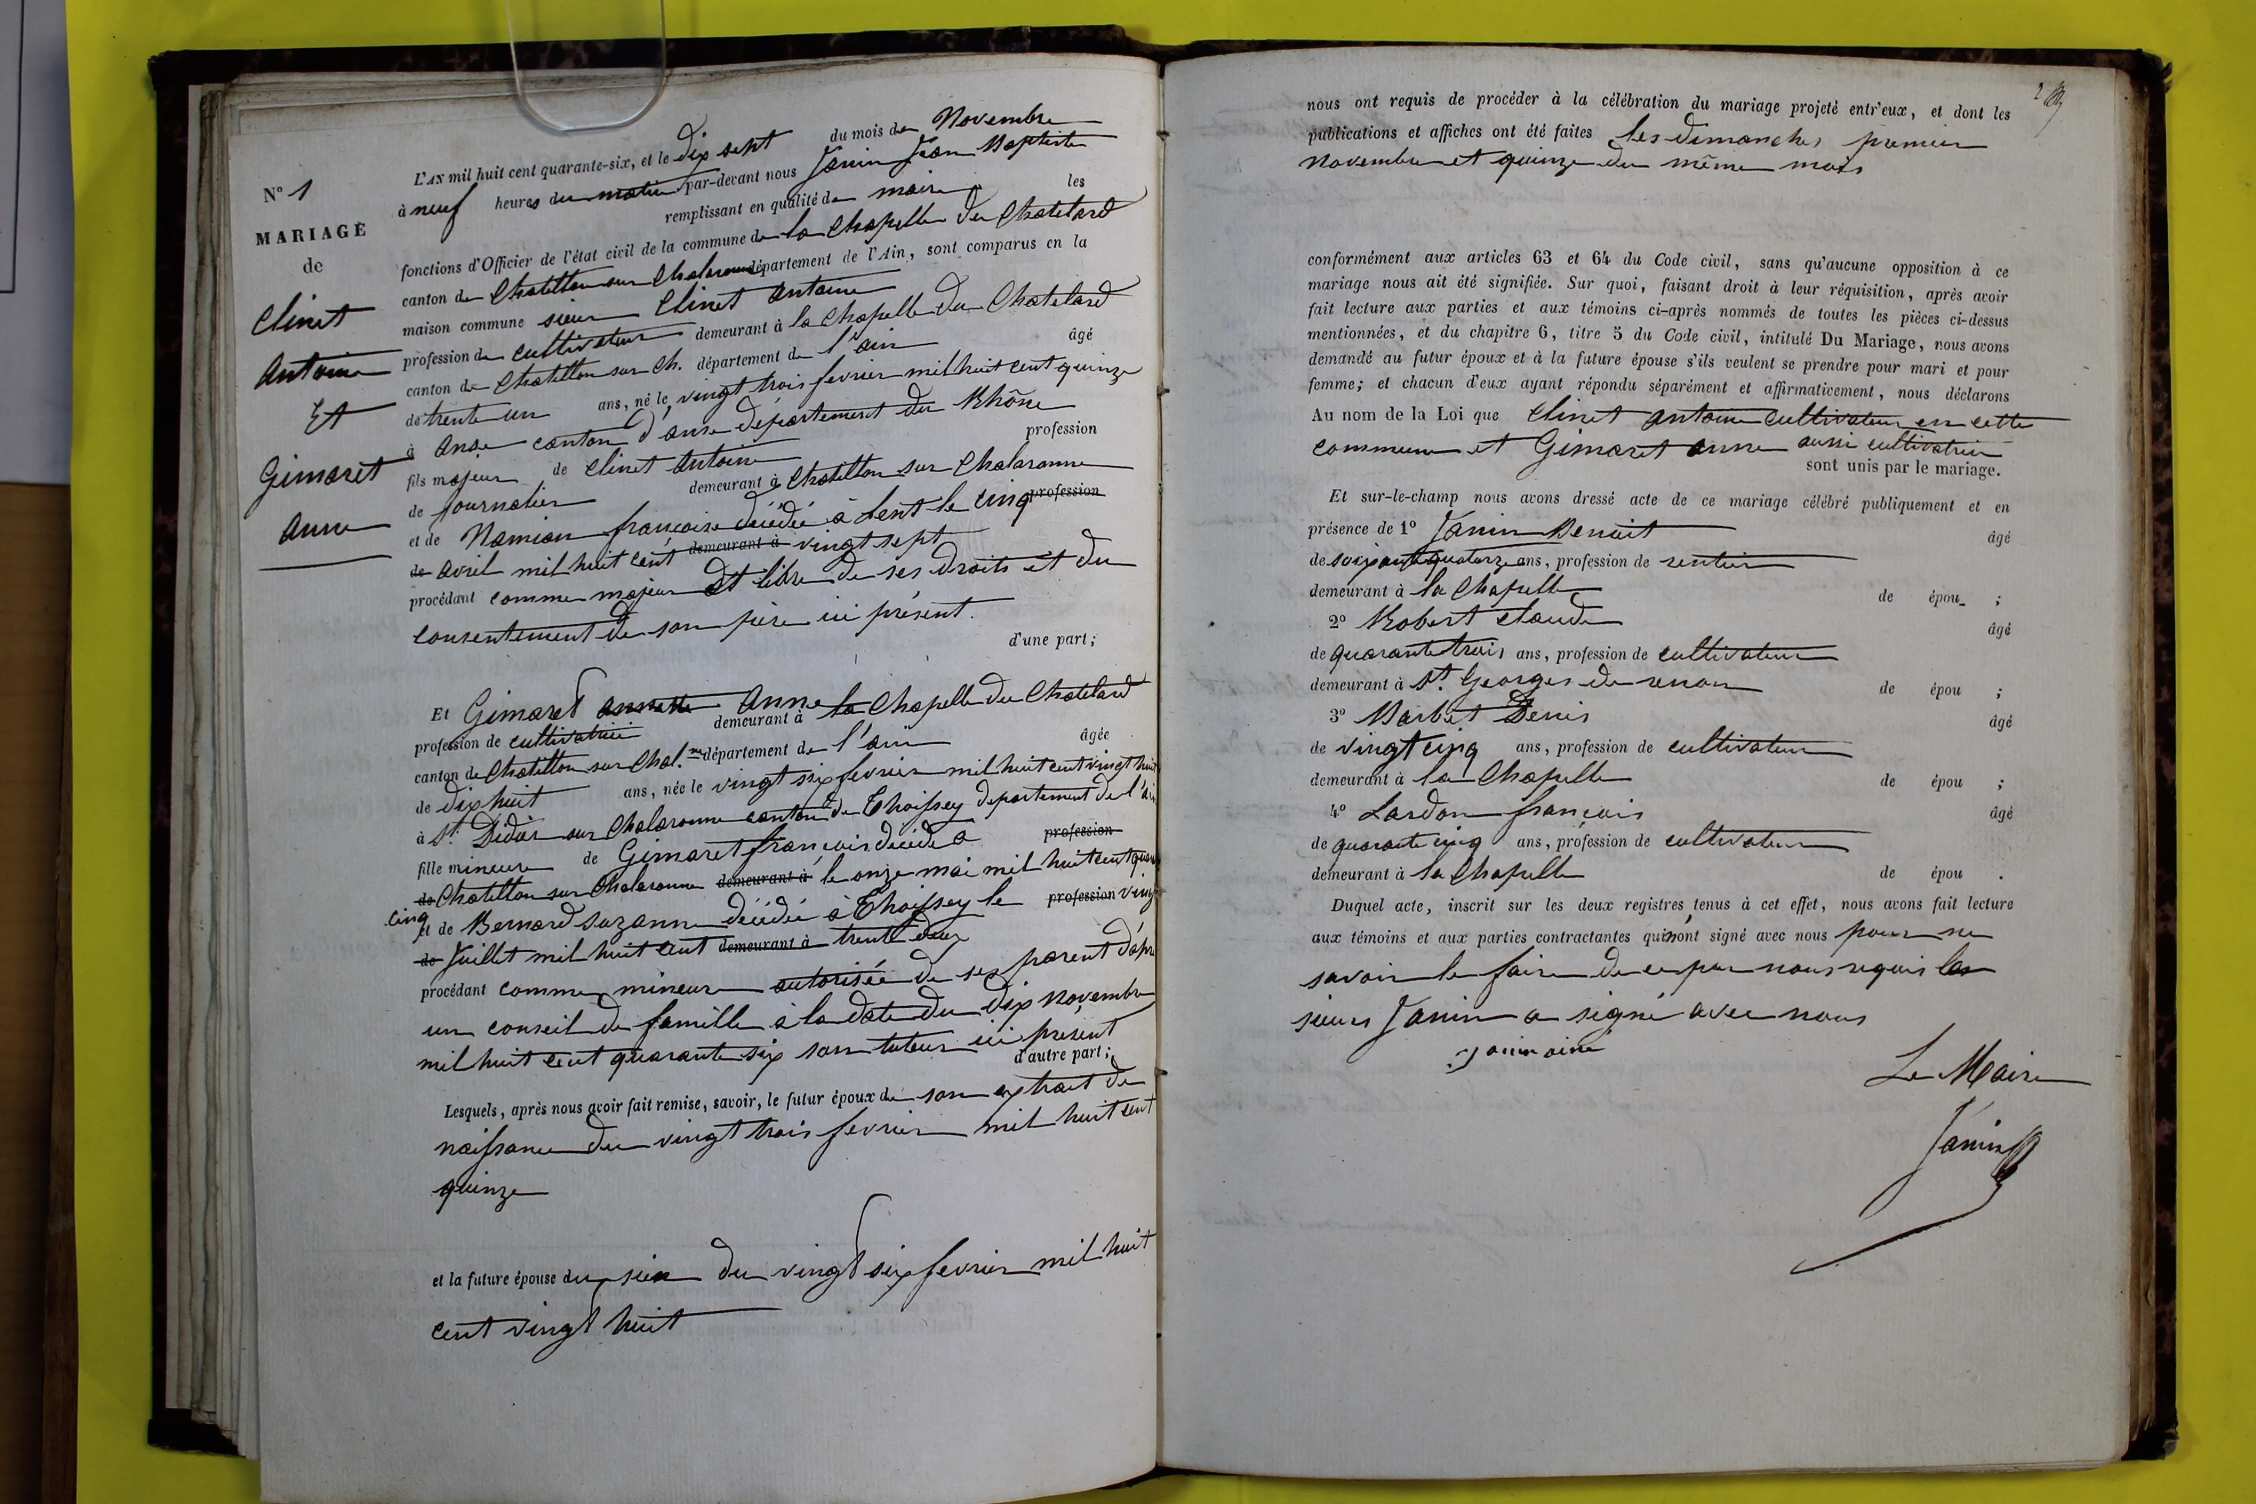 N° 1
MARIAGE
de
Clinet
Antoine
Et
Gimaret
anne
L'AN mil huit cent quarante-six, et le dix sept du mois de Novembre
à neuf heures du matin par-devant nous Janin Jean Baptiste
remplissant en qualité de maire les
fonctions d'Officier de l'état civil de la commune de la Chapelle du Chatelard
canton de Chatillon sur Chalaronne département de l'Ain, sont comparus en la
maison commune sieur Clinet antoine
profession de cultivateur demeurant à la Chapelle du Chatelard
canton de Chatillon sur Ch. département de l'ain âgé
de trente un ans, né le vingt trois fevrier mil huit cent quinze
à anse canton d'anse département du Rhône
fils majeur de Clinet antoine profession
de journalier demeurant à Chatillon sur Chalaronne
et de Namian françoise décédée à Lent le cinq profession
de avril mil huit cent demeurant à vingt sept
procédant comme majeur et libre de ses droits et du
consentement de son père ici présent.
d'une part;
Et Gimaret annette Anne
profession de cultivatrice demeurant à la Chapelle du Chatelard
canton de Chatillon sur Chal.ne département de l'ain âgée
de dix huit ans, née le vingt six fevrier mil huit cent vingt huit
à St. Didier sur Chalaronne canton de Thoissey departement de l'ain
fille mineure de Gimaret françois décédé a profession
de Chatillon sur Chalaronne demeurant à le onze mai mil huit cent quara
cinq
et de Bernard suzanne décédée à Thoissey le profession vingt
de Juillet mil huit cent demeurant à trente deux
procédant comme mineure autorisée de ses parent d'apré
un conseil de famille à la date du dix novembre
mil huit cent quarante six son tuteur ici présent
d'autre part;
Lesquels, après nous avoir fait remise, savoir, le futur époux de son extrait de
naissance du vingt trois fevrier mil huit cent
quinze
et la future épouse du sien du vingt six fevrier mil huit
cent vingt huit
2
nous ont requis de procéder à la célébration du mariage projeté entr'eux, et dont les
publications et affiches ont été faites les dimanches premier
novembre et quinze du même mois
conformément aux articles 63 et 64 du Code civil, sans qu'aucune opposition à ce
mariage nous ait été signifiée. Sur quoi, faisant droit à leur réquisition, après avoir
fait lecture aux parties et aux témoins ci-après nommés de toutes les pièces ci-dessus
mentionnées, et du chapitre 6, titre 5 du Code civil, intitulé Du Mariage, nous avons
demandé au futur époux et à la future épouse s'ils veulent se prendre pour mari et pour
femme; et chacun d'eux ayant répondu séparément et affirmativement, nous déclarons
Au nom de la Loi que Clinet antoine cultivateur en cette
commune et Gimaret anne aussi cultivatrice
sont unis par le mariage.
Et sur-le-champ nous avons dressé acte de ce mariage célébré publiquement et en
présence de 1° Janin Benoit âgé
de soixante quatorze ans, profession de rentier
demeurant à la Chapelle de épou ;
2° Robert Claude âgé
de quarante trois ans, profession de cultivateur
demeurant à St. Georges de renon de épou ;
3° Barbet Denis âgé
de vingt cinq ans, profession de cultivateur
demeurant à la Chapelle de épou ;
4° Lardon françois âgé
de quarante cinq ans, profession de cultivateur
demeurant à la Chapelle de épou .
Duquel acte, inscrit sur les deux registres tenus à cet effet, nous avons fait lecture
aux témoins et aux parties contractantes qui n'ont signé avec nous pour ne
savoir le faire de ce par nous requis les
sieurs Janin a signé avec nous
janin aine
Le Maire
Janin